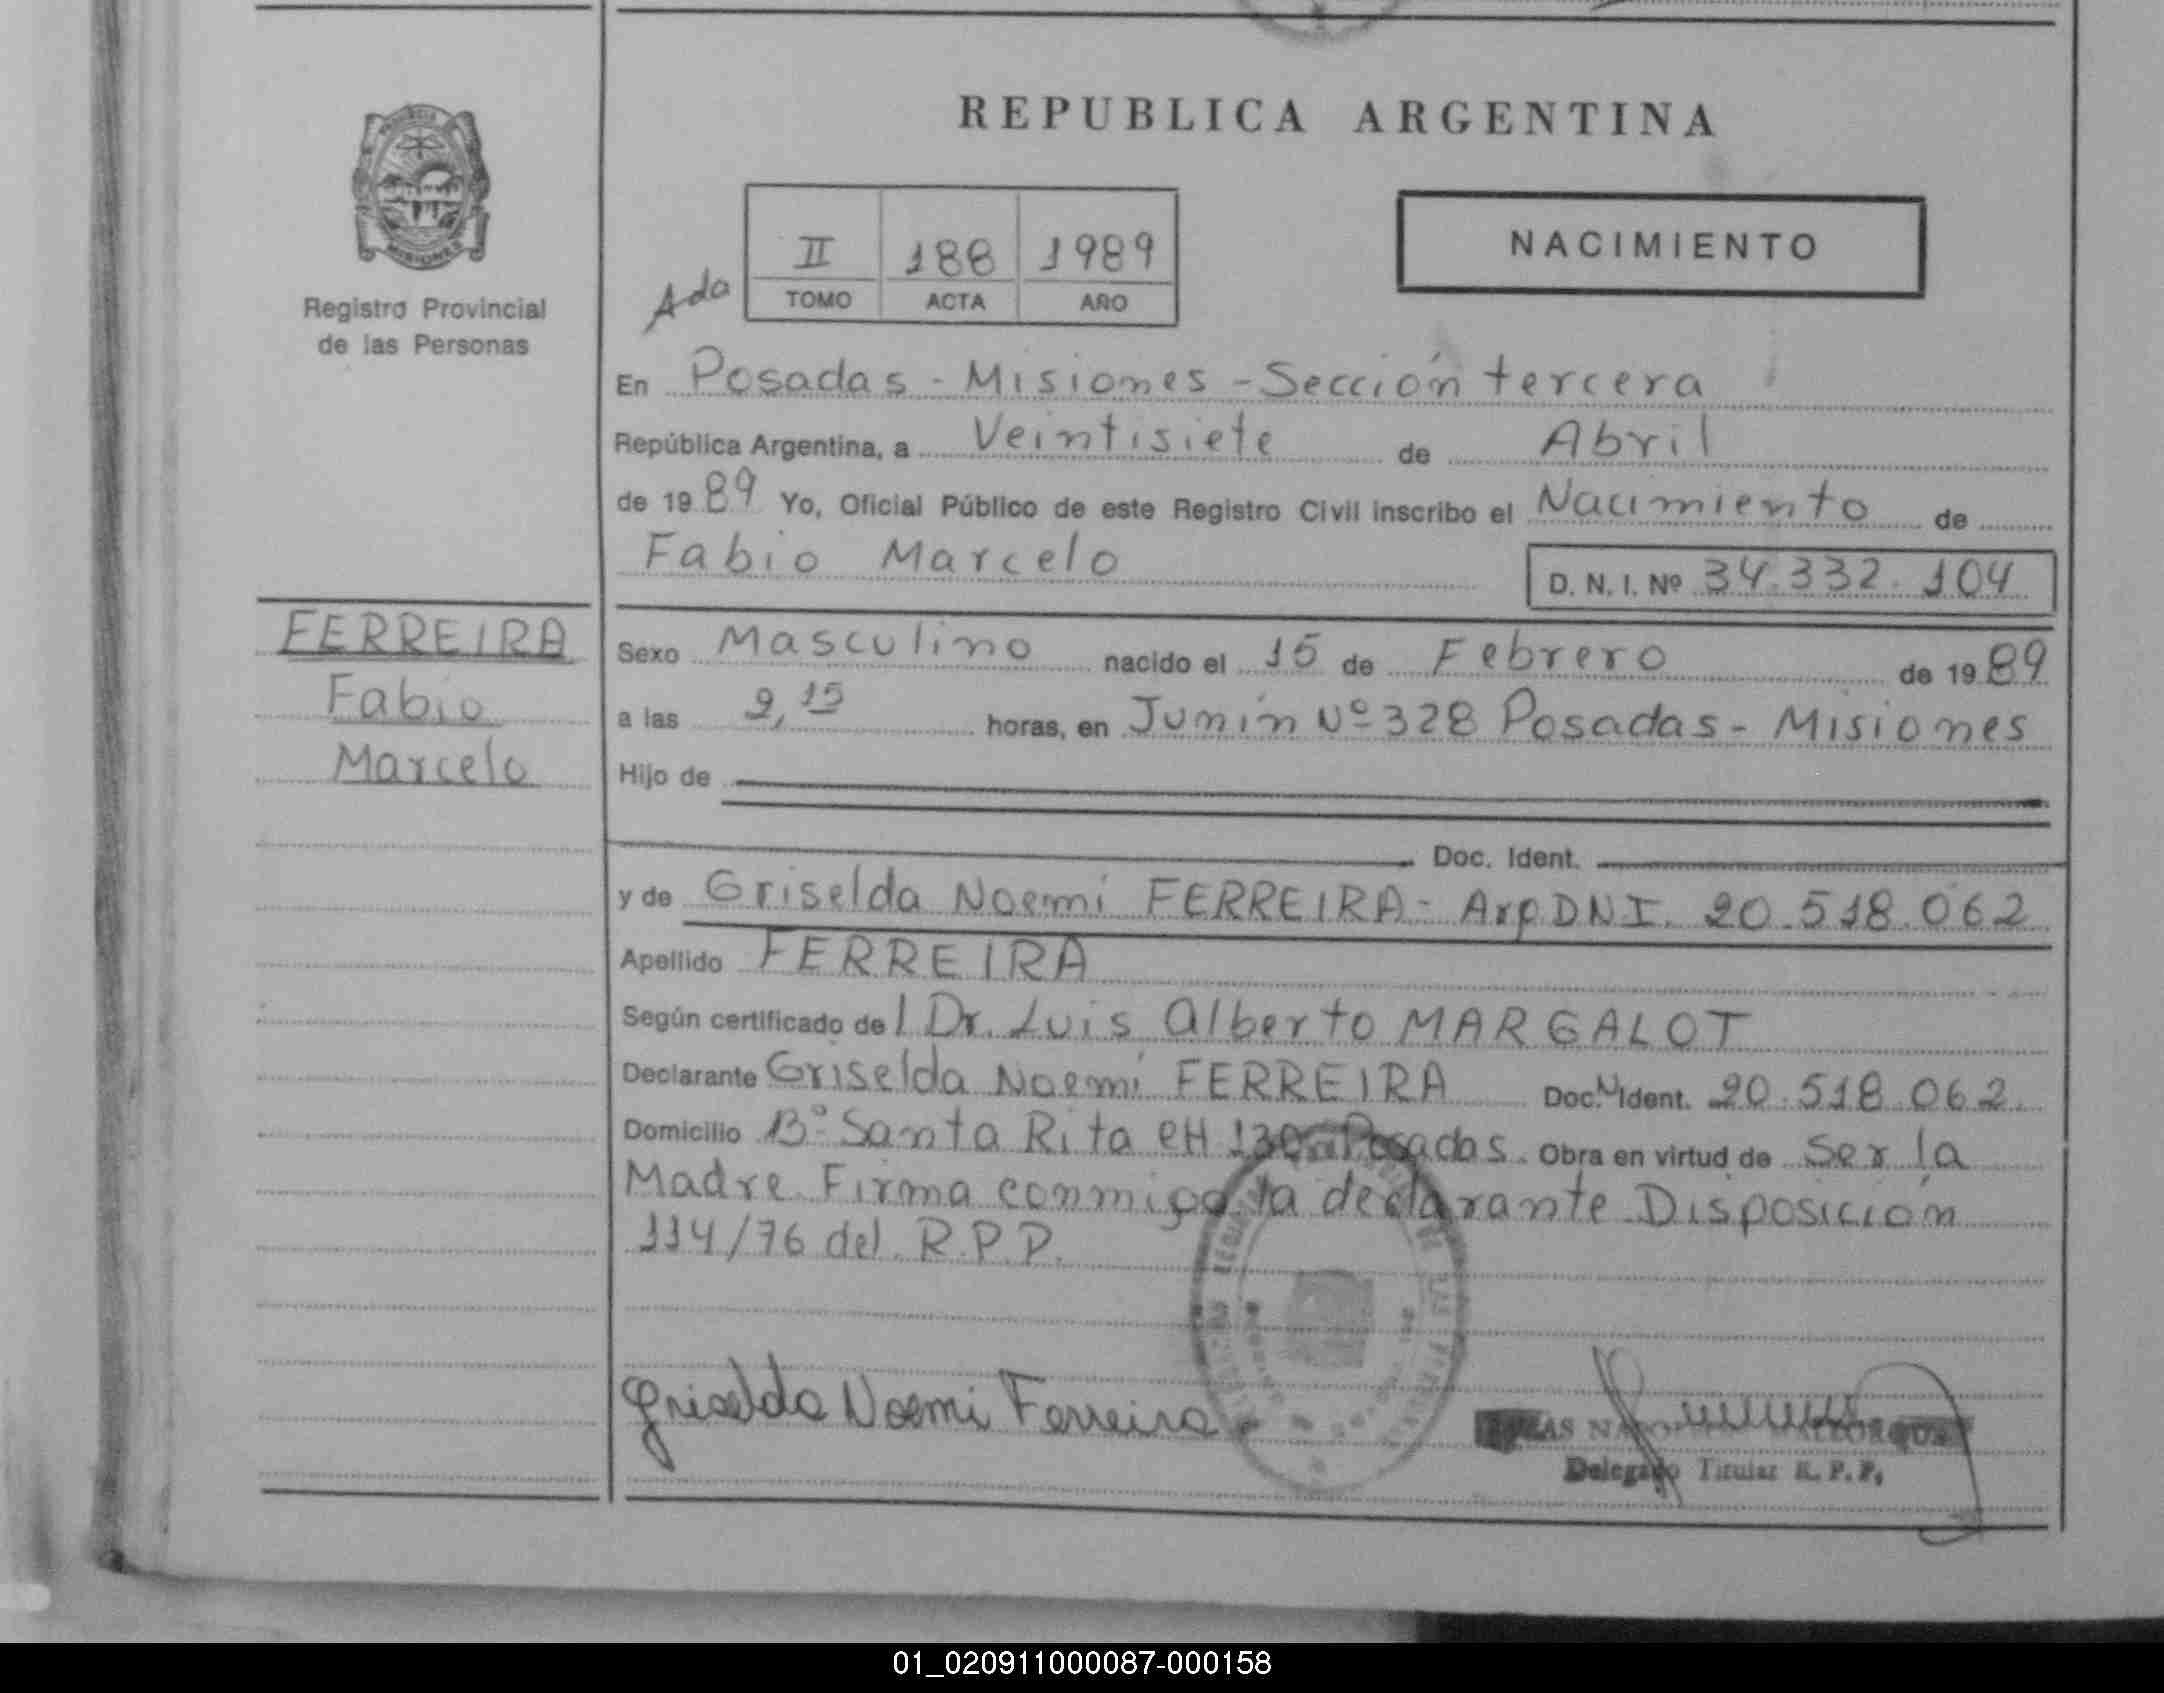 REPUBLICA ARGENTINA
PROVINCIA
MISIONES
Registro Provincial
de las Personas
Ada
II 188 1989
TOMO ACTA AÑO
NACIMIENTO
En Posadas - Misiones - Sección tercera
República Argentina, a Veintisiete de Abril
de 1989 Yo, Oficial Público de este Registro Civil inscribo el Nacimiento de
Fabio Marcelo D. N. I. Nº 34.332.104
FERREIRA
Fabio
Marcelo
Sexo Masculino nacido el 15 de Febrero de 1989
a las 9,15 horas, en Junín Nº 328 Posadas - Misiones
Hijo de
Doc. Ident.
y de Griselda Noemí FERREIRA - Arg DNI. 20.518.062
Apellido FERREIRA
Según certificado del Dr. Luis Alberto MARGALOT
Declarante Griselda Noemí FERREIRA Doc. N Ident. 20.518.062
Domicilio Bº Santa Rita CH 130 Posadas. Obra en virtud de Ser la
Madre. Firma conmigo la declarante Disposición
114/76 del R.P.P.
Griselda Noemi Ferreira
Delegado Titular R. P. P.
01_020911000087-000158